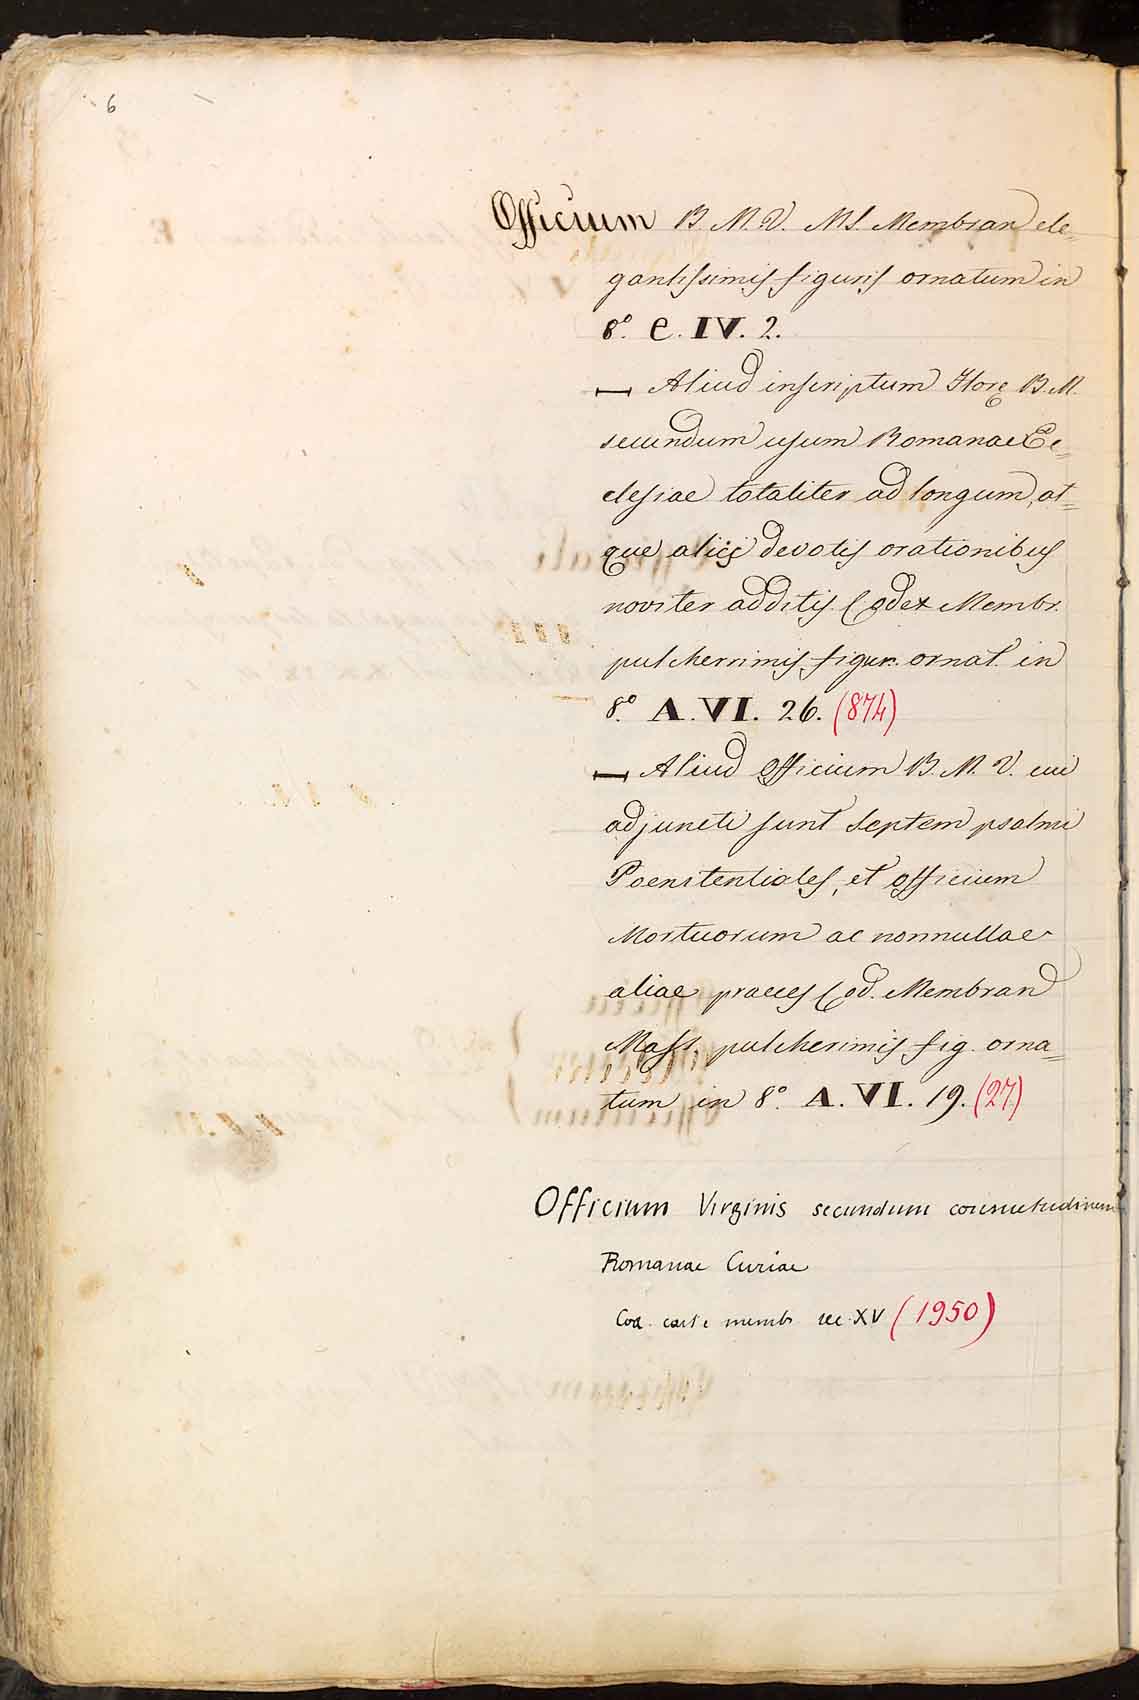 6
Officium B. M. V. MS. Membran ele=
gantissimis figuris ornatum in
8.º e. IV. 2.
— Aliud inscriptum Horę B. M.
secundum usum Romanae Ec=
clesiae totaliter ad longum, at=
que aliis devotis orationibus
noviter additis. Codex Membr.
pulcherrimis figur. ornat. in
8.º A. VI. 26. (874)
— Aliud Officium B. M. V. cui
adjuncti sunt septem psalmi
Poenitentiales, et officium
Mortuorum ac nonnullae
aliae preces Cod. Membran
pulcherimis fig. orna=
tum in 8.º A. VI. 19. (27)
Officium Virginis secundum consuetudinem
Romanae Curiae
Cod. membr sec. XV (1950)